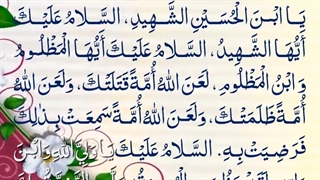 يَا ابْنَ الْحُسَيْنِ الشَّهِيدِ، السَّلَامُ عَلَيْكَ
أَيُّهَا الشَّهِيدُ، السَّلَامُ عَلَيْكَ أَيُّهَا الْمَظْلُومُ
وَابْنُ الْمَظْلُومِ، لَعَنَ اللّٰهُ أُمَّةً قَتَلَتْكَ، وَلَعَنَ اللّٰهُ
أُمَّةً ظَلَمَتْكَ، وَلَعَنَ اللّٰهُ أُمَّةً سَمِعَتْ بِذٰلِكَ
فَرَضِيَتْ بِهِ. السَّلَامُ عَلَيْكَ يَا وَلِيَّ اللّٰهِ وَابْنَ